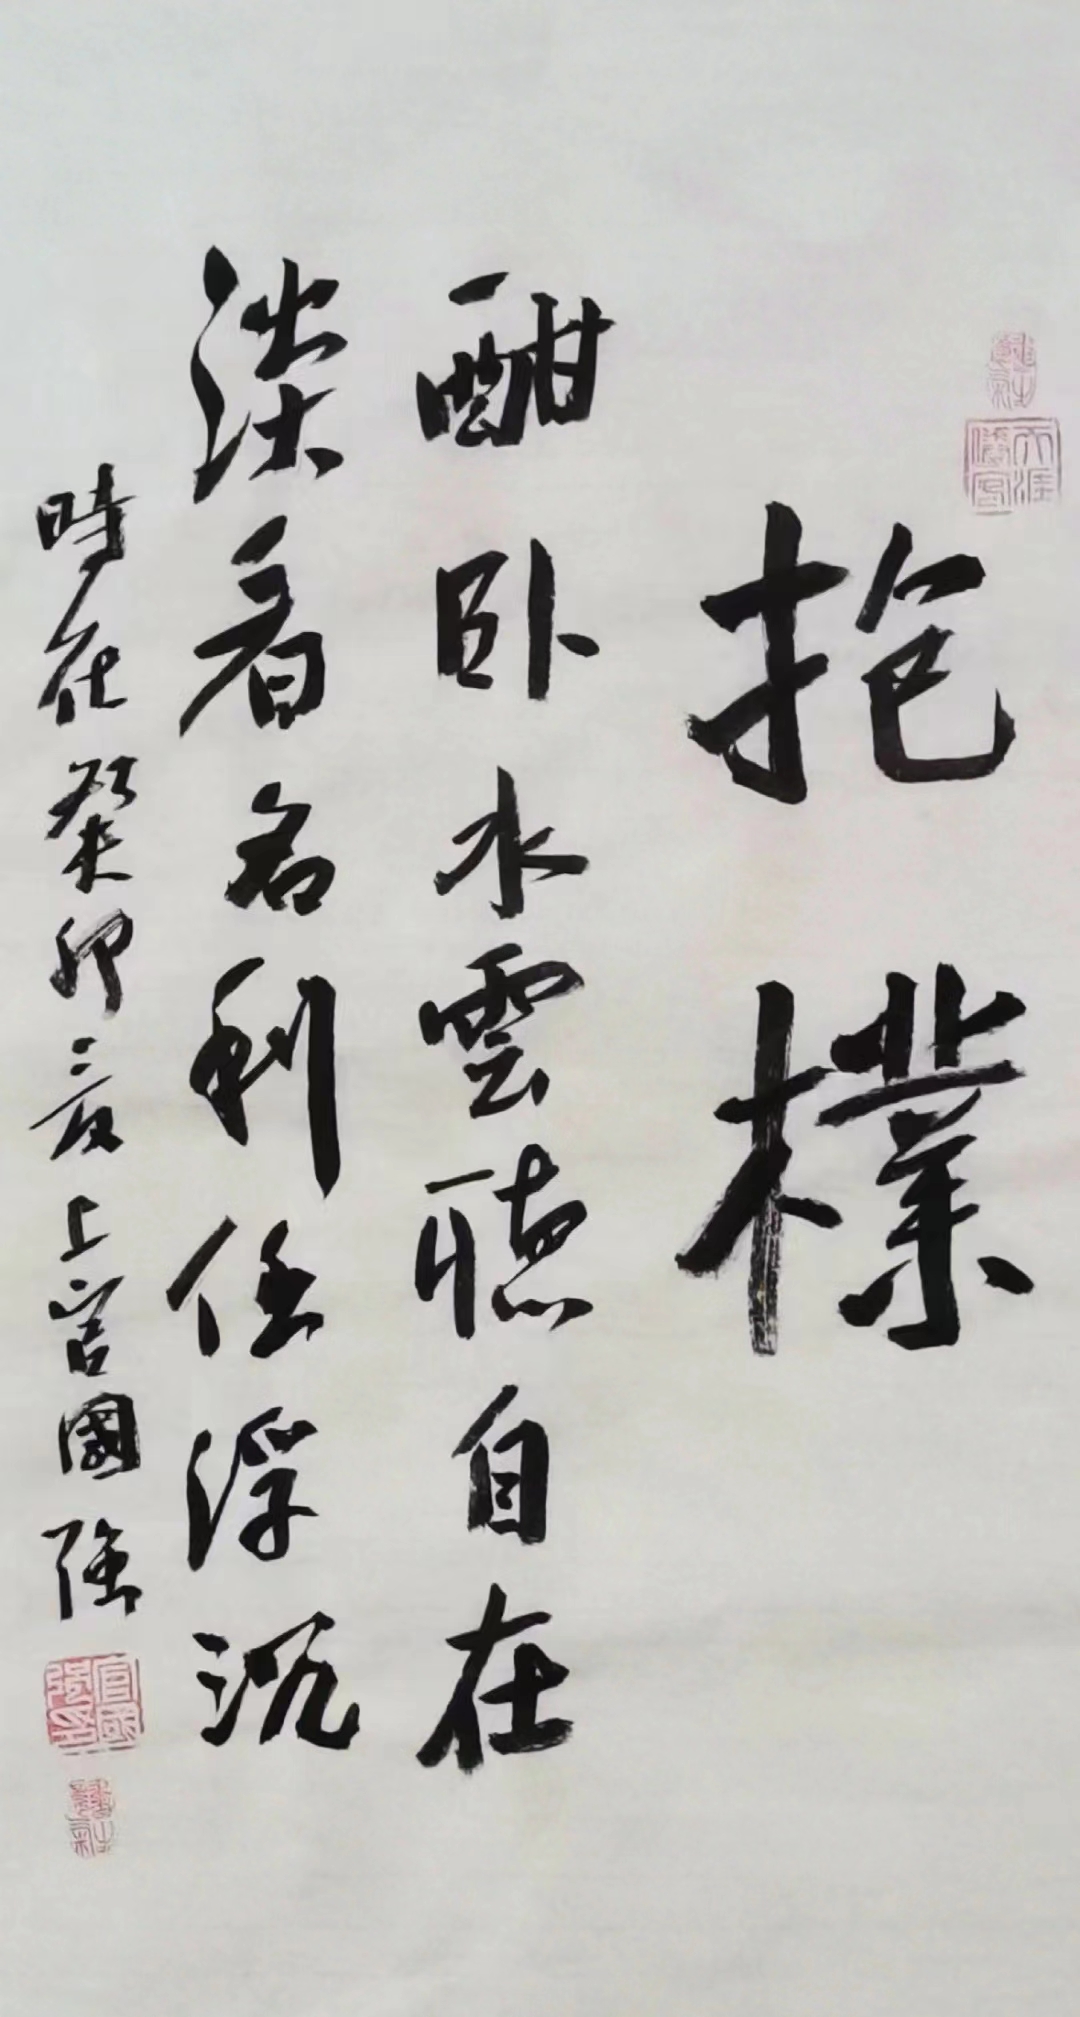 抱樸
酣卧水雲聽自在
淡看名利任浮沉
時在癸卯夏上官國強